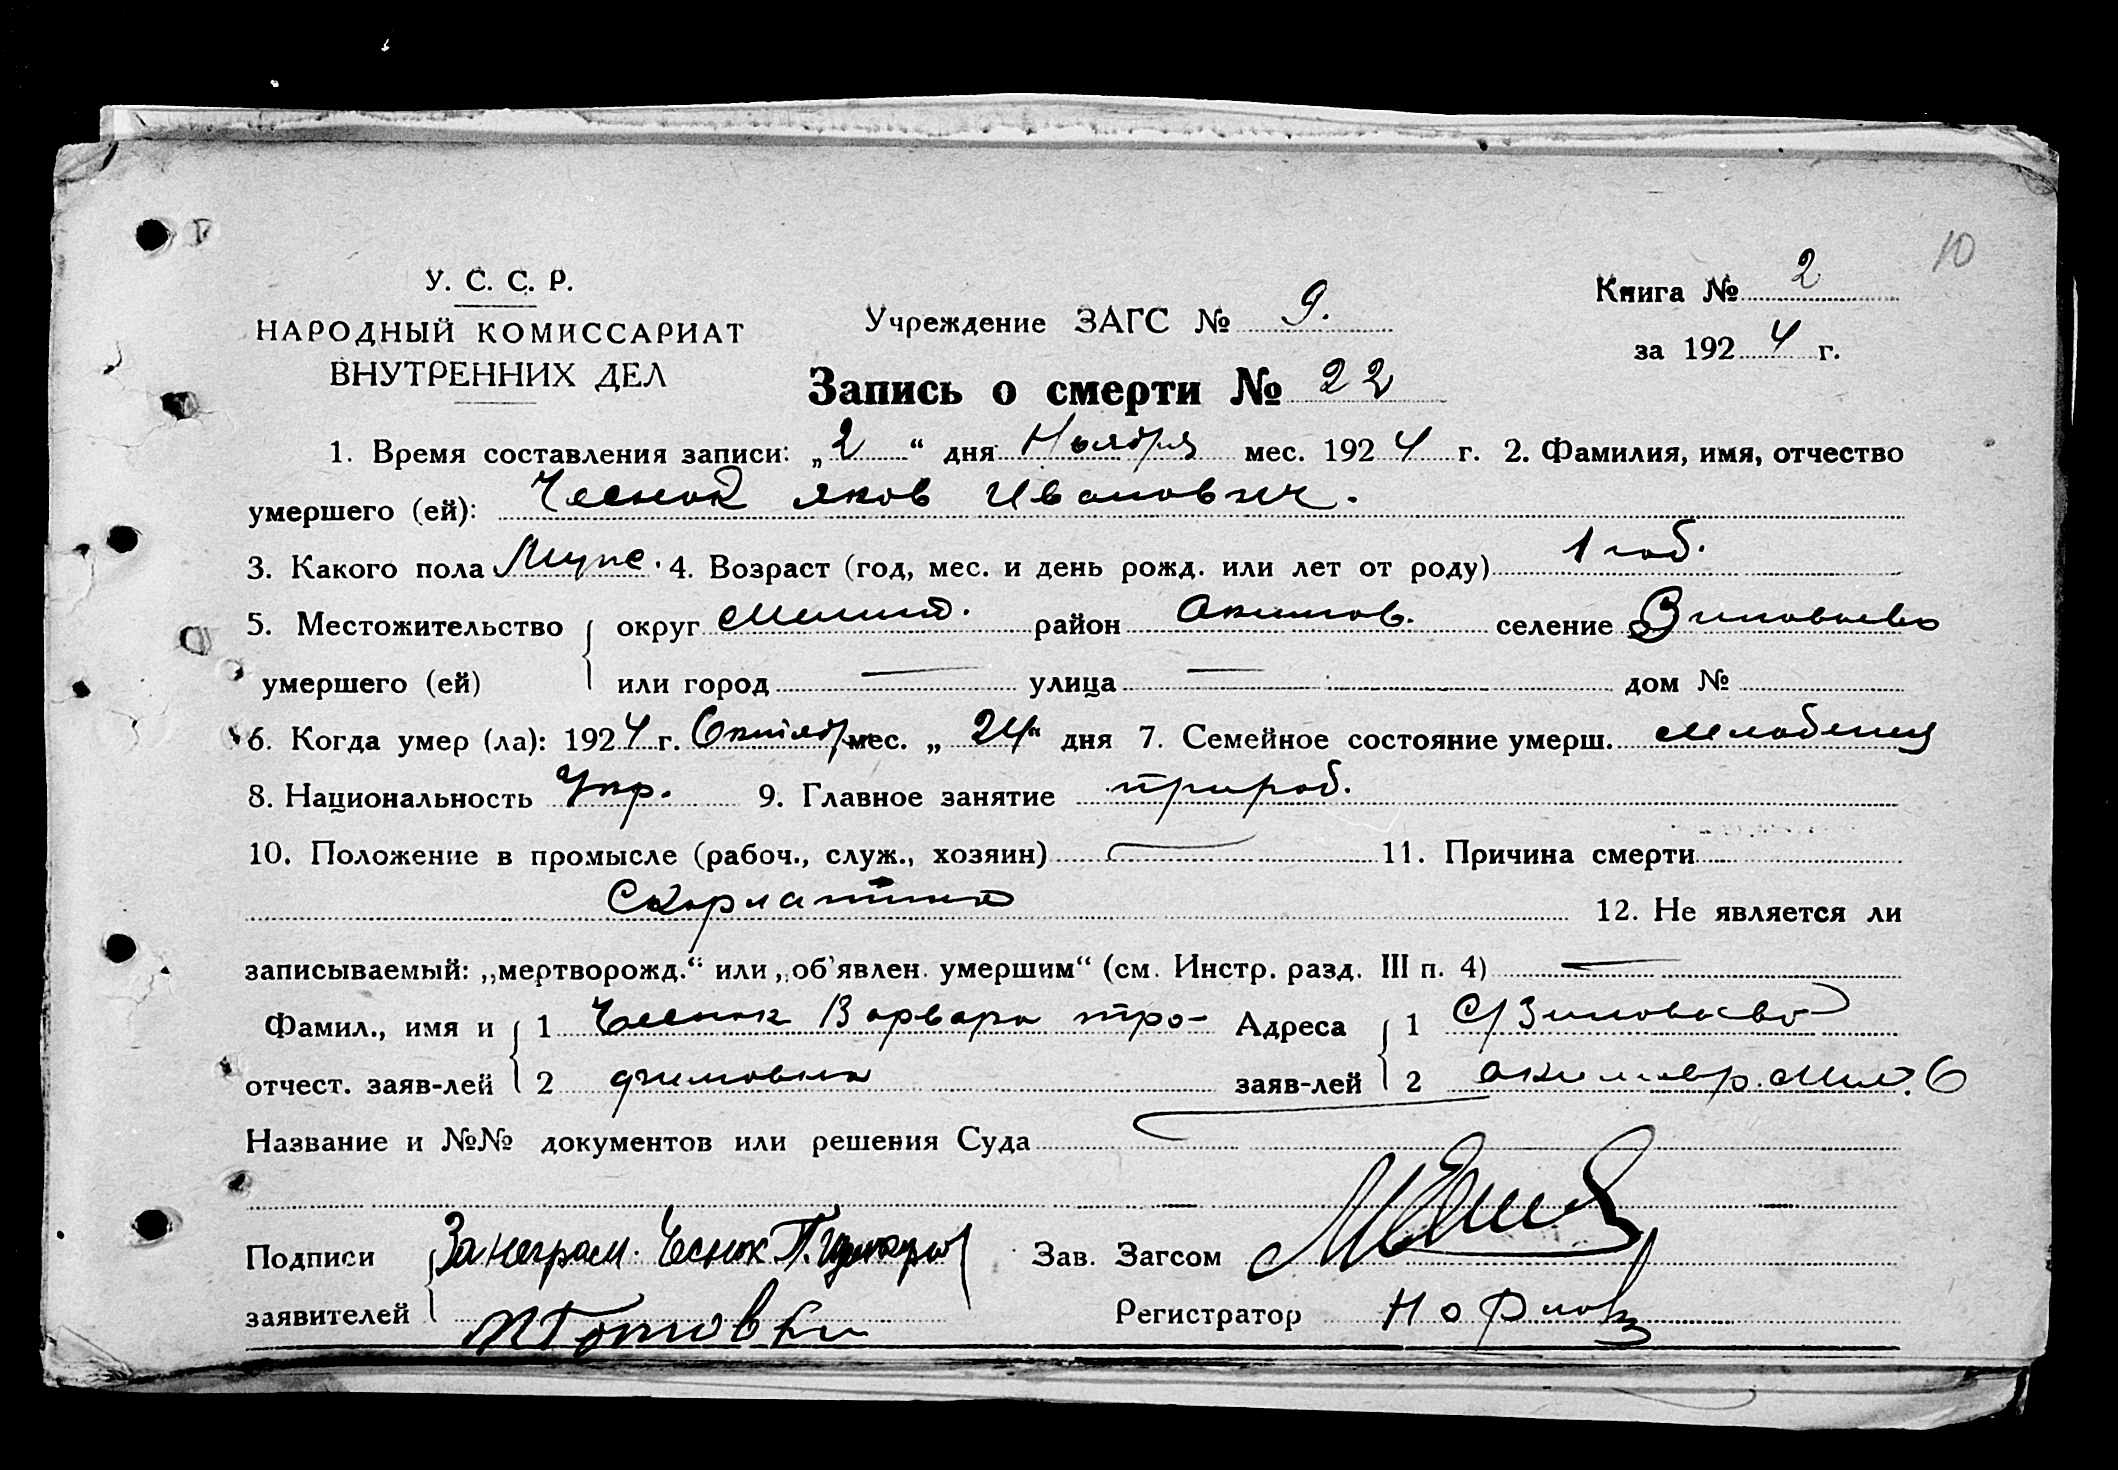 10
У. С. С. Р.
НАРОДНЫЙ КОМИССАРИАТ
ВНУТРЕННИХ ДЕЛ
Учреждение ЗАГС № 9.
Книга № 2
за 1924 г.
Запись о смерти № 22
1. Время составления записи: „2“ дня Ноября мес. 1924 г. 2. Фамилия, имя, отчество
умершего (ей): Чеснок Яков Иванович.
3. Какого пола Муже. 4. Возраст (год, мес. и день рожд. или лет от роду) 1 год.
5. Местожительство округ Мелит. район Акимов. селение Зиновьево
умершего (ей) или город — улица — дом №
6. Когда умер (ла): 1924 г. Октябр мес. „24“ дня 7. Семейное состояние умерш. младенец
8. Национальность Укр. 9. Главное занятие
10. Положение в промысле (рабоч., служ., хозяин) — 11. Причина смерти
Скорлатина 12. Не является ли
записываемый: „мертворожд.“ или „об'явлен. умершим“ (см. Инстр. разд. III п. 4) —
Фамил., имя и 1 Чеснок Варвара тро- Адреса 1 С/Зиновьево
отчест. заяв-лей 2 фимовна заяв-лей 2 Акимов р.
Название и №№ документов или решения Суда —
Подписи За неграм. Чеснок Зав. Загсом
заявителей Регистратор